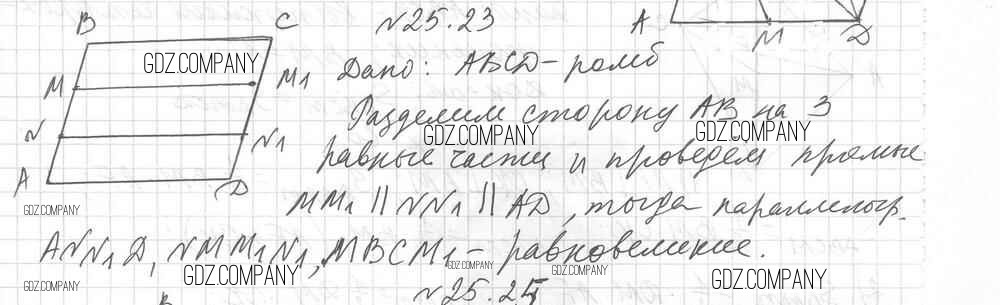 №25.23
B C
A M D
M M1
N N1
A D
Дано: ABCD - ромб
Разделим сторону AB на 3
равные части и проведем прямые
MM1 || NN1 || AD, тогда параллелогр.
ANN1D, NMM1N1, MBCM1 - равновеликие.
№25.25
B
GDZ.COMPANY
GDZ.COMPANY
GDZ.COMPANY
GDZ.COMPANY
GDZ.COMPANY
GDZ.COMPANY
GDZ.COMPANY
GDZ.COMPANY
GDZ.COMPANY